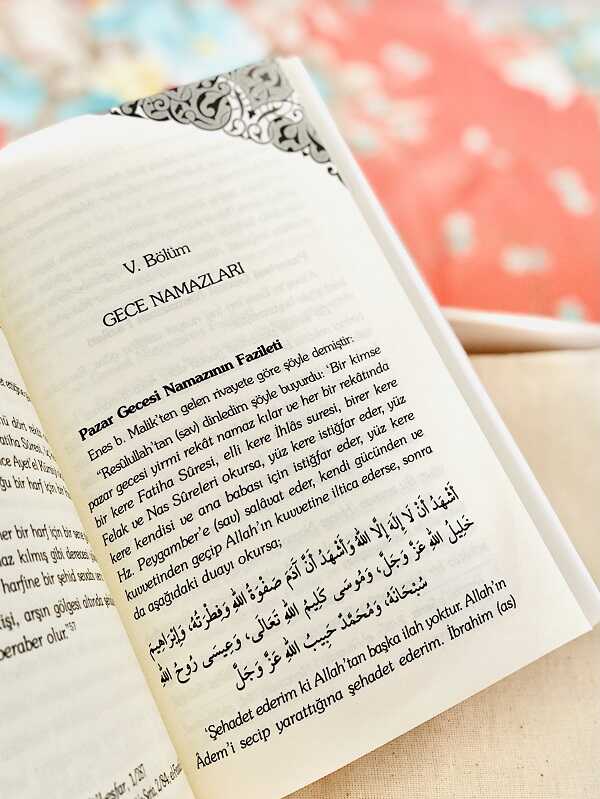 V. Bölüm
GECE NAMAZLARI
Pazar Gecesi Namazının Fazileti
Enes b. Malik'ten gelen rivayete göre şöyle demiştir:
"Resûlullah'tan (sav) dinledim şöyle buyurdu: 'Bir kimse
pazar gecesi yirmi rekât namaz kılar ve her bir rekâtında
bir kere Fatiha Sûresi, elli kere İhlâs suresi, birer kere
Felak ve Nas Sûreleri okursa, yüz kere istiğfar eder, yüz
kere kendisi ve ana babası için istiğfar eder, yüz kere
Hz. Peygamber'e (sav) salâvat eder, kendi gücünden ve
kuvvetinden geçip Allah'ın kuvvetine iltica ederse, sonra
da aşağıdaki duayı okursa;
أَشْهَدُ أَنْ لَا إِلَهَ إِلَّا اللهُ وَأَشْهَدُ أَنَّ آدَمَ صَفْوَةُ اللهِ وَفِطْرَتُهُ، وَإِبْرَاهِيمَ
خَلِيلُ اللهِ عَزَّ وَجَلَّ، وَمُوسَى كَلِيمُ اللهِ تَعَالَى، وَعِيسَى رُوحُ اللهِ
سُبْحَانَهُ وَمُحَمَّدٌ حَبِيبُ اللهِ عَزَّ وَجَلَّ
'Şehadet ederim ki Allah'tan başka ilah yoktur. Allah'ın
Âdem'i secip yarattığına şehadet ederim. İbrahim (as)
dört rekât
Fatiha Sûresi,
Ayet'el
bir harf için
her bir harf için bir sene
kılmış gibi derecesi
harfine bir şehid sevabı
arşın gölgesi altında
beraber olur."57
1/287
2/84